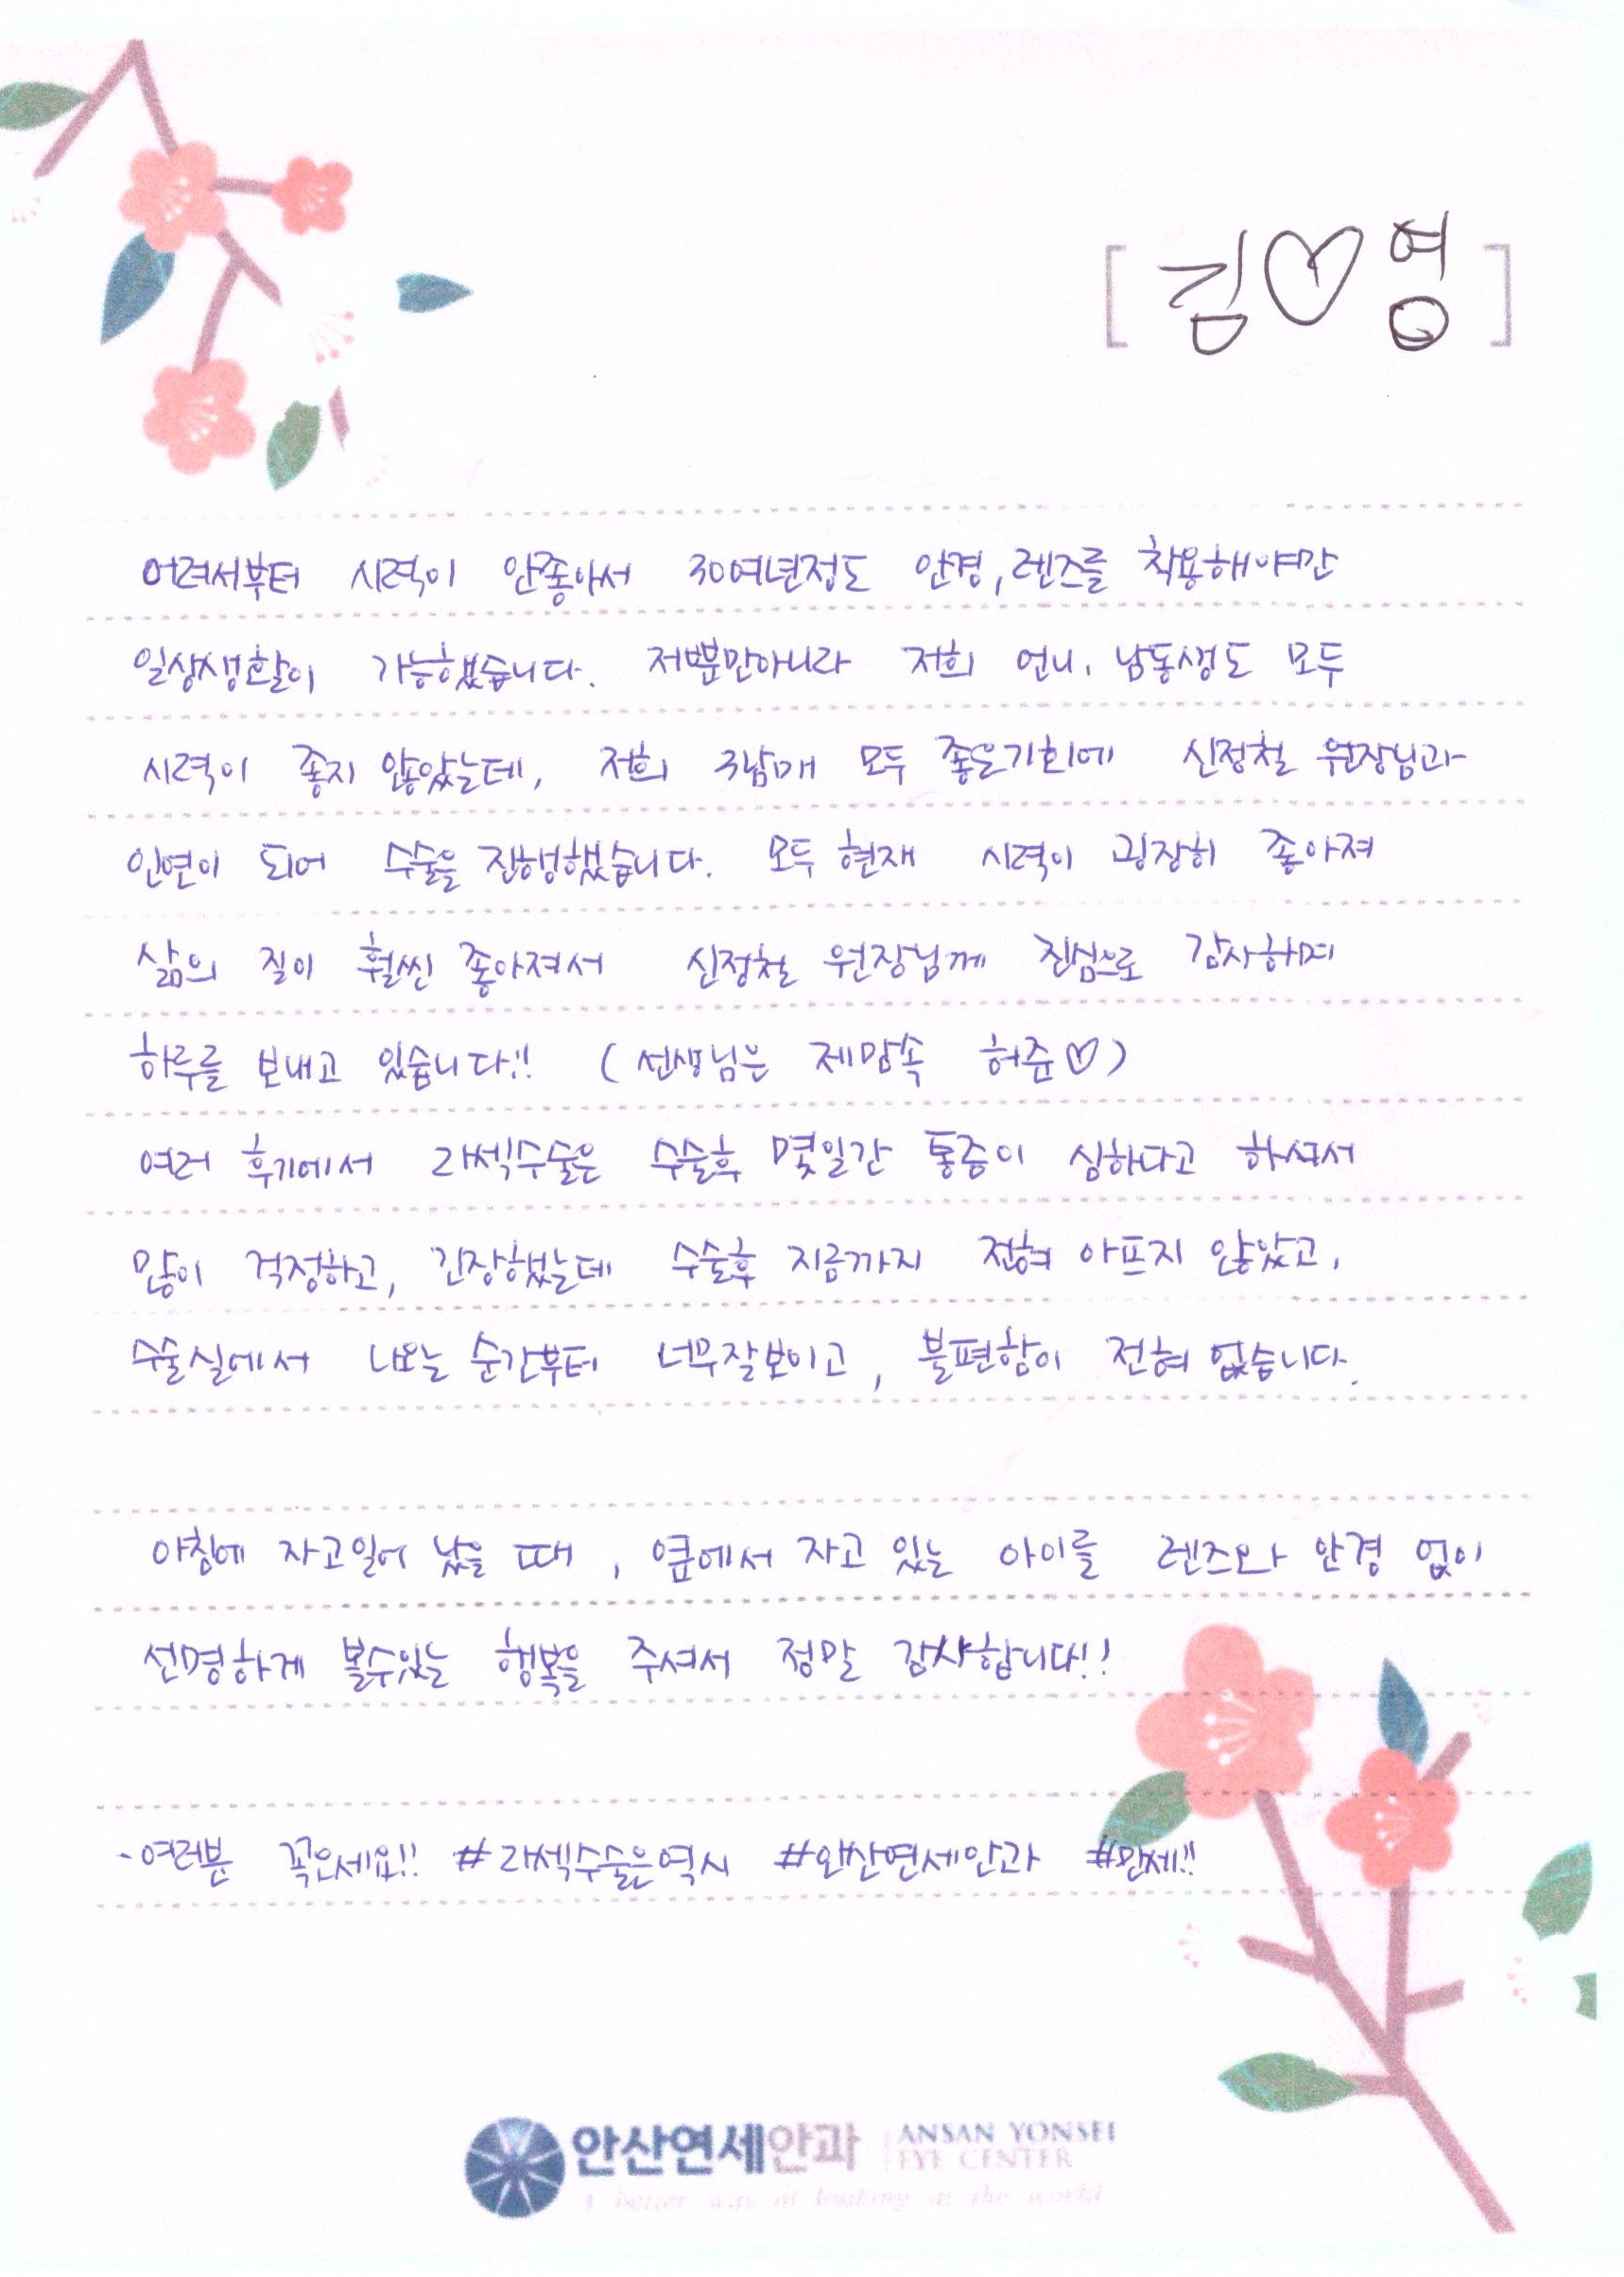 [ 김♡영 ]
어려서부터 시력이 안좋아서 30여년정도 안경, 렌즈를 착용해야만
일상생활이 가능했습니다. 저뿐만아니라 저희 언니, 남동생도 모두
시력이 좋지 않았는데, 저희 3남매 모두 좋은기회에 신정철 원장님과
인연이 되어 수술을 진행했습니다. 모두 현재 시력이 굉장히 좋아져
삶의 질이 훨씬 좋아져서 신정철 원장님께 진심으로 감사하며
하루를 보내고 있습니다!! (선생님은 제맘속 허준♡)
여러 후기에서 라섹수술은 수술후 몇일간 통증이 심하다고 하셔서
많이 걱정하고, 긴장했는데 수술후 지금까지 전혀 아프지 않았고,
수술실에서 나오는 순간부터 너무잘보이고, 불편함이 전혀 없습니다.
아침에 자고일어 났을 때, 옆에서 자고 있는 아이를 렌즈와 안경 없이
선명하게 볼수있는 행복을 주셔서 정말 감사합니다!!
-여러분 꼭오세요!! #라섹수술은역시 #안산연세안과 #만세!!
안산연세안과 ANSAN YONSEI
EYE CENTER
A better way of looking at the world